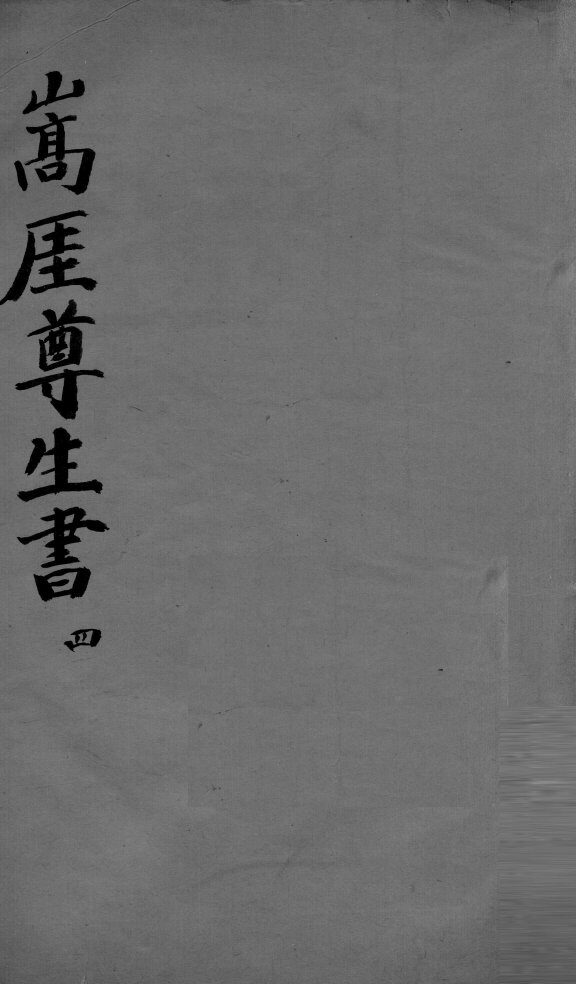 嵩厓尊生書
四